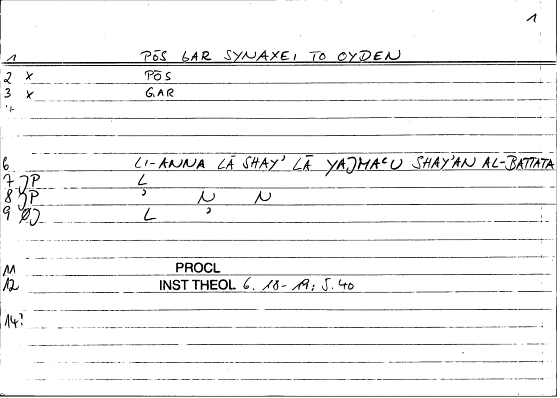 1
1 PŌS GAR SYNAXEI TO OYDEN
2 x PŌS
3 x GAR
6 LI-ANNA LĀ SHAY' LĀ YAJMAʿU SHAY'AN AL-BATTATA
7 JP L
8 JP ' N N
9 ØJ L '
11 PROCL
12 INST THEOL 6. 18-19; 5. 40
14?